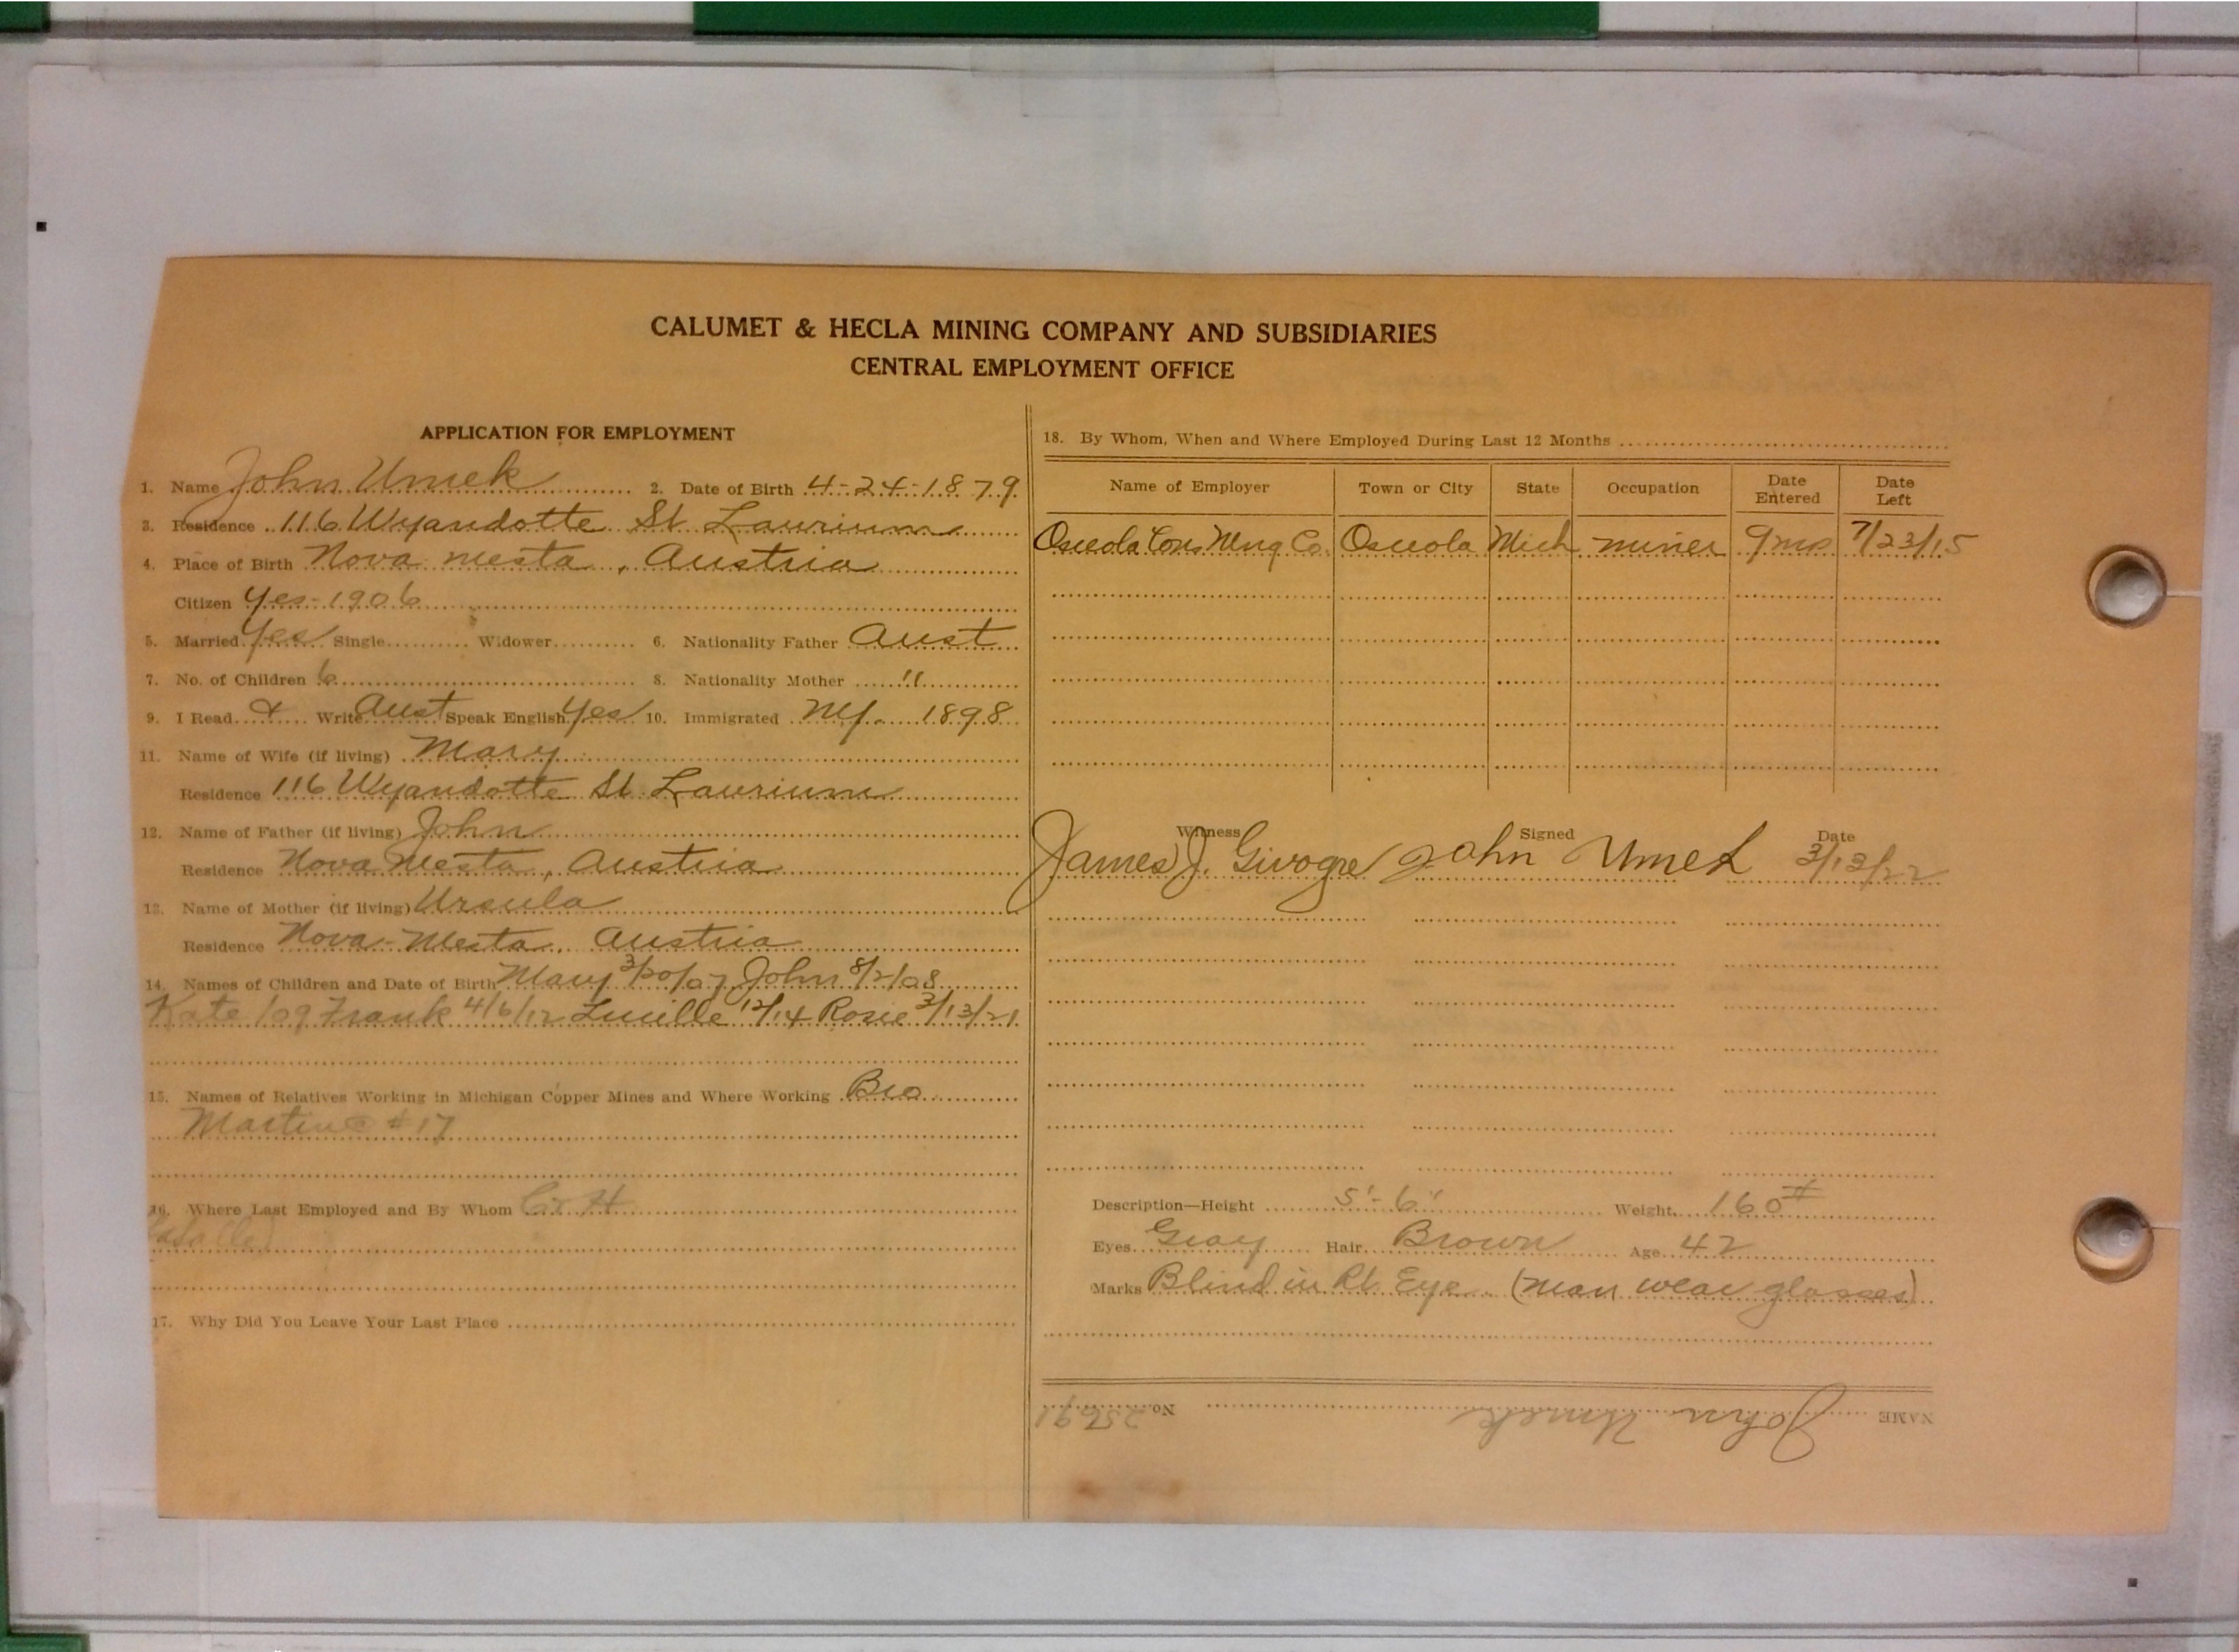 CALUMET & HECLA MINING COMPANY AND SUBSIDIARIES
CENTRAL EMPLOYMENT OFFICE
APPLICATION FOR EMPLOYMENT
1. Name John Umek 2. Date of Birth 4-24-1879
3. Residence 116 Wyandotte St Laurium
4. Place of Birth Nova mesta, Austria
Citizen Yes-1906
5. Married Yes Single Widower 6. Nationality Father Aust
7. No. of Children 6 8. Nationality Mother "
9. I Read & Write Aust Speak English Yes 10. Immigrated Ny. 1898
11. Name of Wife (if living) Mary
Residence 116 Wyandotte St Laurium
12. Name of Father (if living) John
Residence Nova Mesta, Austria
13. Name of Mother (if living) Ursula
Residence Nova-Mesta. Austria
14. Names of Children and Date of Birth Mary 3/20/07 John 8/2/08
Kate /09 Frank 4/6/12 Lucille 12/14 Rosie 3/13/21
15. Names of Relatives Working in Michigan Copper Mines and Where Working Bro
Martin #17
16. Where Last Employed and By Whom
17. Why Did You Leave Your Last Place
18. By Whom, When and Where Employed During Last 12 Months
Name of Employer Town or City State Occupation Date Entered Date Left
Osceola Cons Mng Co. Osceola Mich miner 9mo 7/23/15
Witness Signed Date
James J. Givogre John Umek 3/13/22
Description—Height 5'-6" Weight 160#
Eyes Gray Hair Brown Age 42
Marks Blind in Rt Eye. (man wear glasses)
NAME John Umek No. 25691